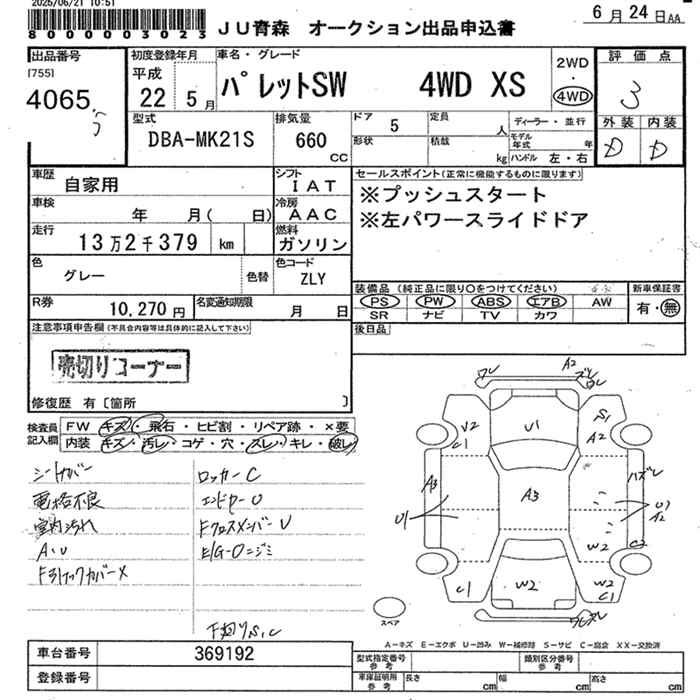 2025/06/21 10:51
8000003023
JU青森 オークション出品申込書
6月24日AA
出品番号
[755]
4065
初度登録年月
平成
22 5月
車名・グレード
パレットSW 4WD XS
2WD
・
4WD
評価点
3
外装 内装
D D
型式
DBA-MK21S
排気量
660
CC
ドア
5
定員
人
ディーラー・並行
形状
積載
kg
モデル年式 年
ハンドル 左・右
車歴
自家用
シフト
IAT
セールスポイント(正常に機能するものに限ります)
※プッシュスタート
※左パワースライドドア
車検
年 月( 日)
冷房
AAC
走行
13万2千379 km
燃料
ガソリン
色
グレー
色替
色コード
ZLY
装備品 (純正品に限り○をつけてください)
新車保証書
PS PW ABS エアB AW
有・無
SR ナビ TV カワ
R券
10,270円
名変通知期限
月 日
後日品
注意事項申告欄(不具合内容等は具体的に記入して下さい)
売切りコーナー
修復歴 有〔箇所 〕
検査員記入欄
FW キズ・飛石・ヒビ割・リペア跡・×要
内装 キズ・汚レ・コゲ・穴・スレ・キレ・破レ
シートカバー
電格不良
室内汚れ
A・U
ロッカーC
エンドサーU
Fクロスメンバー U
E/G-Oニジミ
下廻りS,C
ワレ
A2
ズレ
ワレ
V2
C1
U1
S1
A2
A3
A3
ハズレ
U1
U1
A2
C1
W2
W2
C2
W2
C1
ワレズレ
スペア
A-キズ E-エクボ U-凹み W-補修跡 S-サビ C-腐食 XX-交換済
車台番号
369192
登録番号
型式指定番号
参考
類別区分番号
参考
車庫証明用
参考
長さ cm
幅 cm
高さ cm